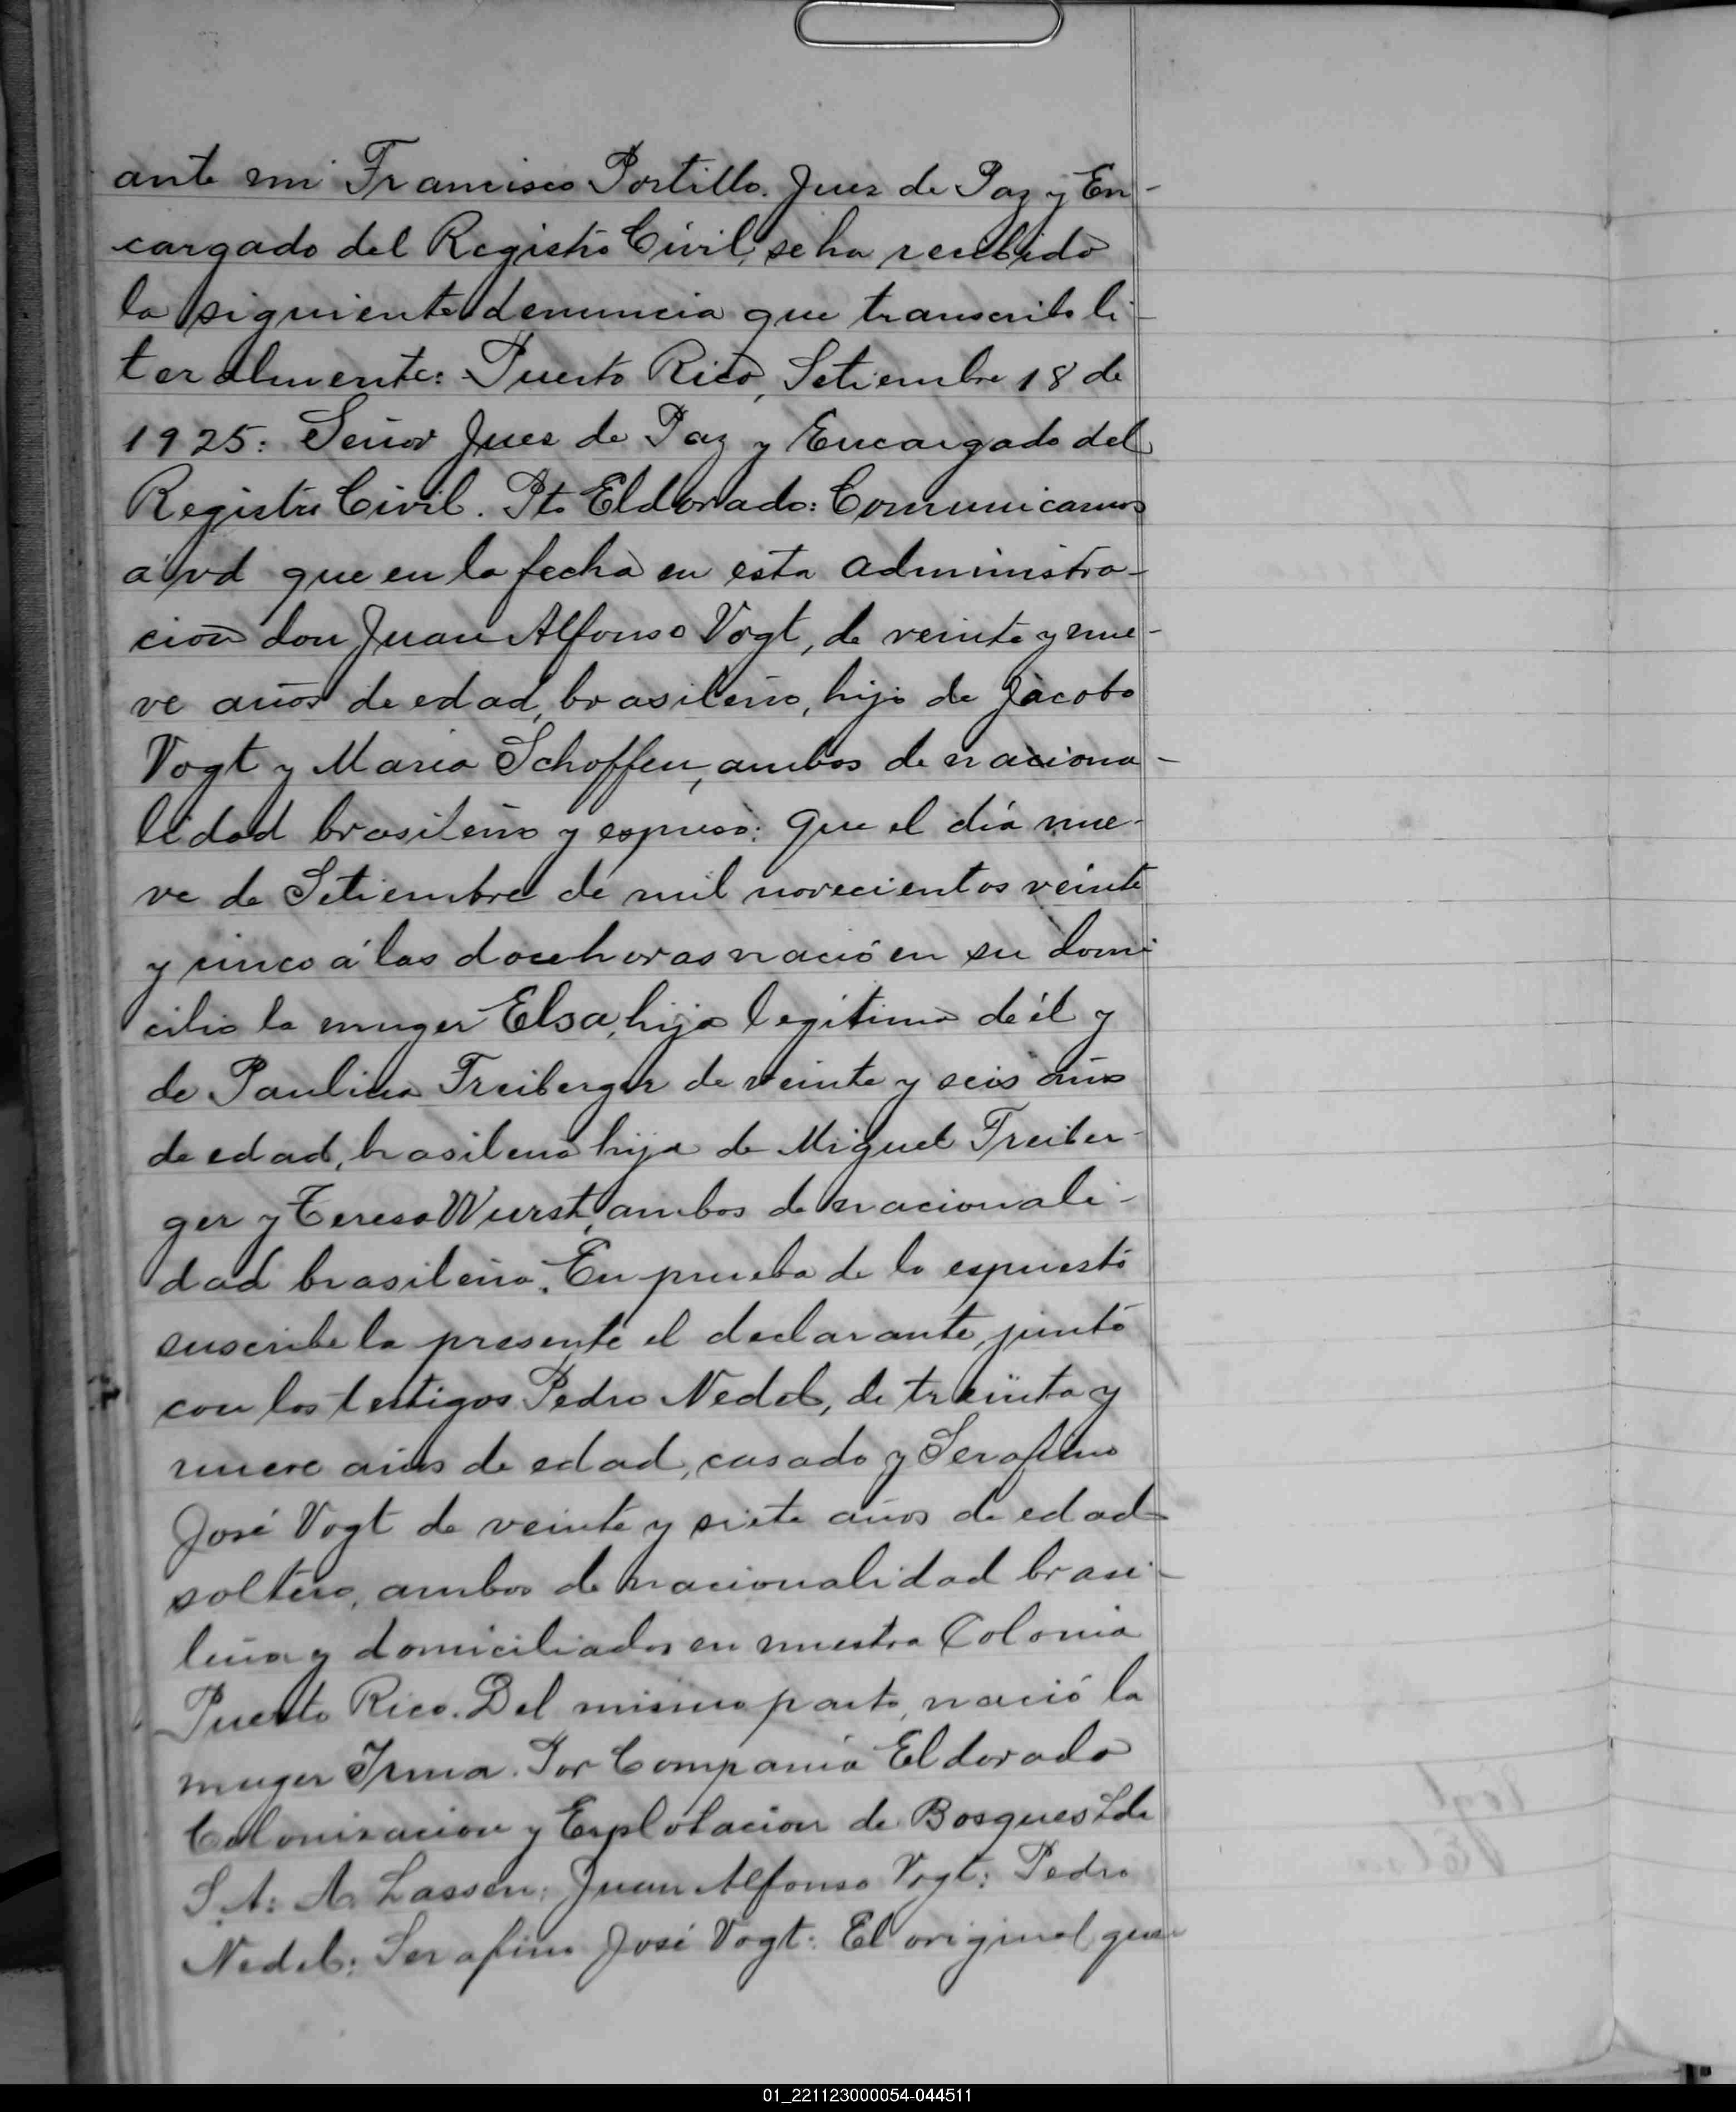 ante mi Francisco Portillo. Juez de Paz y En-
cargado del Registro Civil, se ha recibido
la siguiente denuncia que transcribo li-
teralmente: Puerto Rico, Setiembre 18 de
1925: Señor Juez de Paz y Encargado del
Registro Civil. Pto Eldorado: Comunicamos
á vd que en la fecha en esta administra-
cion don Juan Alfonso Vogt, de veinte y nue-
ve años de edad, brasileño, hijo de Jacobo
Vogt y Maria Schoffen, ambos de naciona-
lidad brasileña y espuso: que el día nue-
ve de Setiembre de mil novecientos veinte
y cinco á las doce horas nació en su domi-
cilio la muger Elsa, hija legítima de él y
de Paulina Freiberger de veinte y seis años
de edad, brasilena hija de Miguel Freiber-
ger y Teresa Wurst, ambos de nacionali-
dad brasileña. En prueba de lo espuesto
suscribe la presente el declarante, junto
con los testigos Pedro Nedel, de treinta y
nueve años de edad, casado y Serafino
José Vogt de veinte y siete años de edad
soltero, ambos de nacionalidad brasi-
leña y domiciliados en nuestra Colonia
Puerto Rico. Del mismo parto, nació la
muger Irma. Por Compania Eldorado
Colonizacion y Esplotacion de Bosques Lda
S.A: A. Lassen: Juan Alfonso Vogt: Pedro
Nedel: Serafino José Vogt: El original que
01_221123000054-044511